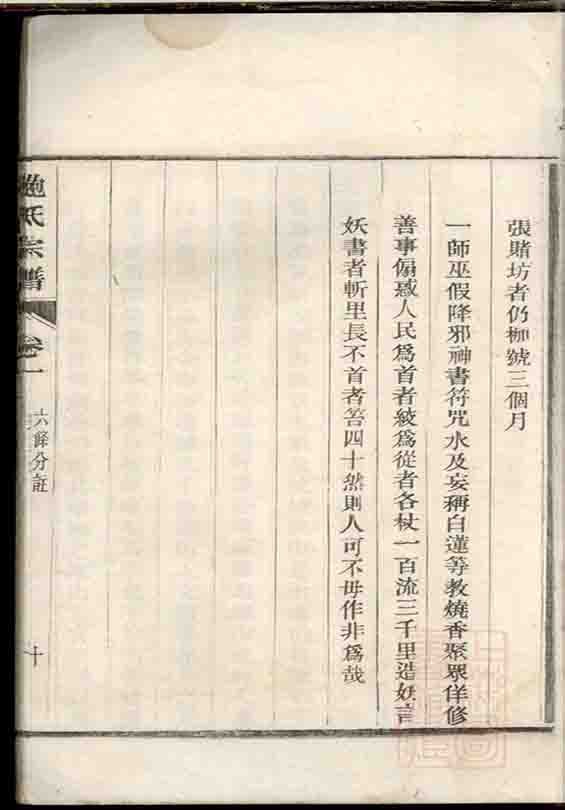 張賭坊者仍枷號三個月
一師巫假降邪神書符咒水及妄稱白蓮等教燒香聚眾佯修
善事煽惑人民爲首者絞爲從者各杖一百流三千里造妖言
妖書者斬里長不首者笞四十然則人可不毋作非爲哉
鮑氏宗譜
卷一
六條分註
十